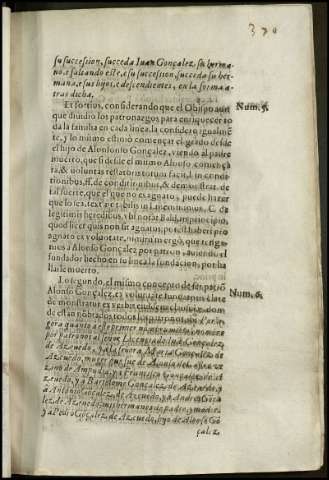 370
su succession, succeda Iuan Gonçalez, su herma-
no, e faltando este, e su succession, succeda su her-
mana, e sus hijos, e descendientes, en la forma a-
tras dicha.
Et fortius, considerando que el Obispo aun
que diuidio los patronazgos para enriquecer to
da la familia en cada linea, la considerò igualmē
te, y lo mismo estimò començar el grado desde
el hijo de Alonso Gonçalez, viendo al padre
muerto, que si desde el mismo Alonso começa
ra, & voluntas testatoris totum facit, l. in condi-
tionibus, ff. de condit. &
tal suerte, que el que no es agnato, puede hazer
que lo sea, text. l. C. de
legitimis heredibus, vbi notat Bald. in principio,
quod licet quis non sit agnatus, potest haberi pro
agnato ex voluntate, ergo, que tenga-
mos a Alonso Gonçalez por patron, auiendo el
fundador hecho en su linea la fundacion, por ha
llarle muerto.
Num. 5.
Lo segundo, el mismo concepto de ser patrō
Alonso Gonçalez, ex voluntate fundatoris
de monstratur ex verbis
de estan
gero quanto a este primer
por patron al señor Licenciado Iuan Gonçalez
de Azeuedo, y a la señora Maria Gonçalez de
Azeuedo, muger que fue de
zino de Ampudia, y a Francisco Gonçalez de A-
zeuedo, y a Bartolome Gonçalez de Azeuedo, y a
Antonio Gonçalez de Azeuedo, y a Andres Gonça
lez de Azeuedo, mis hermanos de padre, y madre,
y a Pedro Gōçalez de Azeuedo, hijo de Alonso Gō
çalez,
Num. 6.